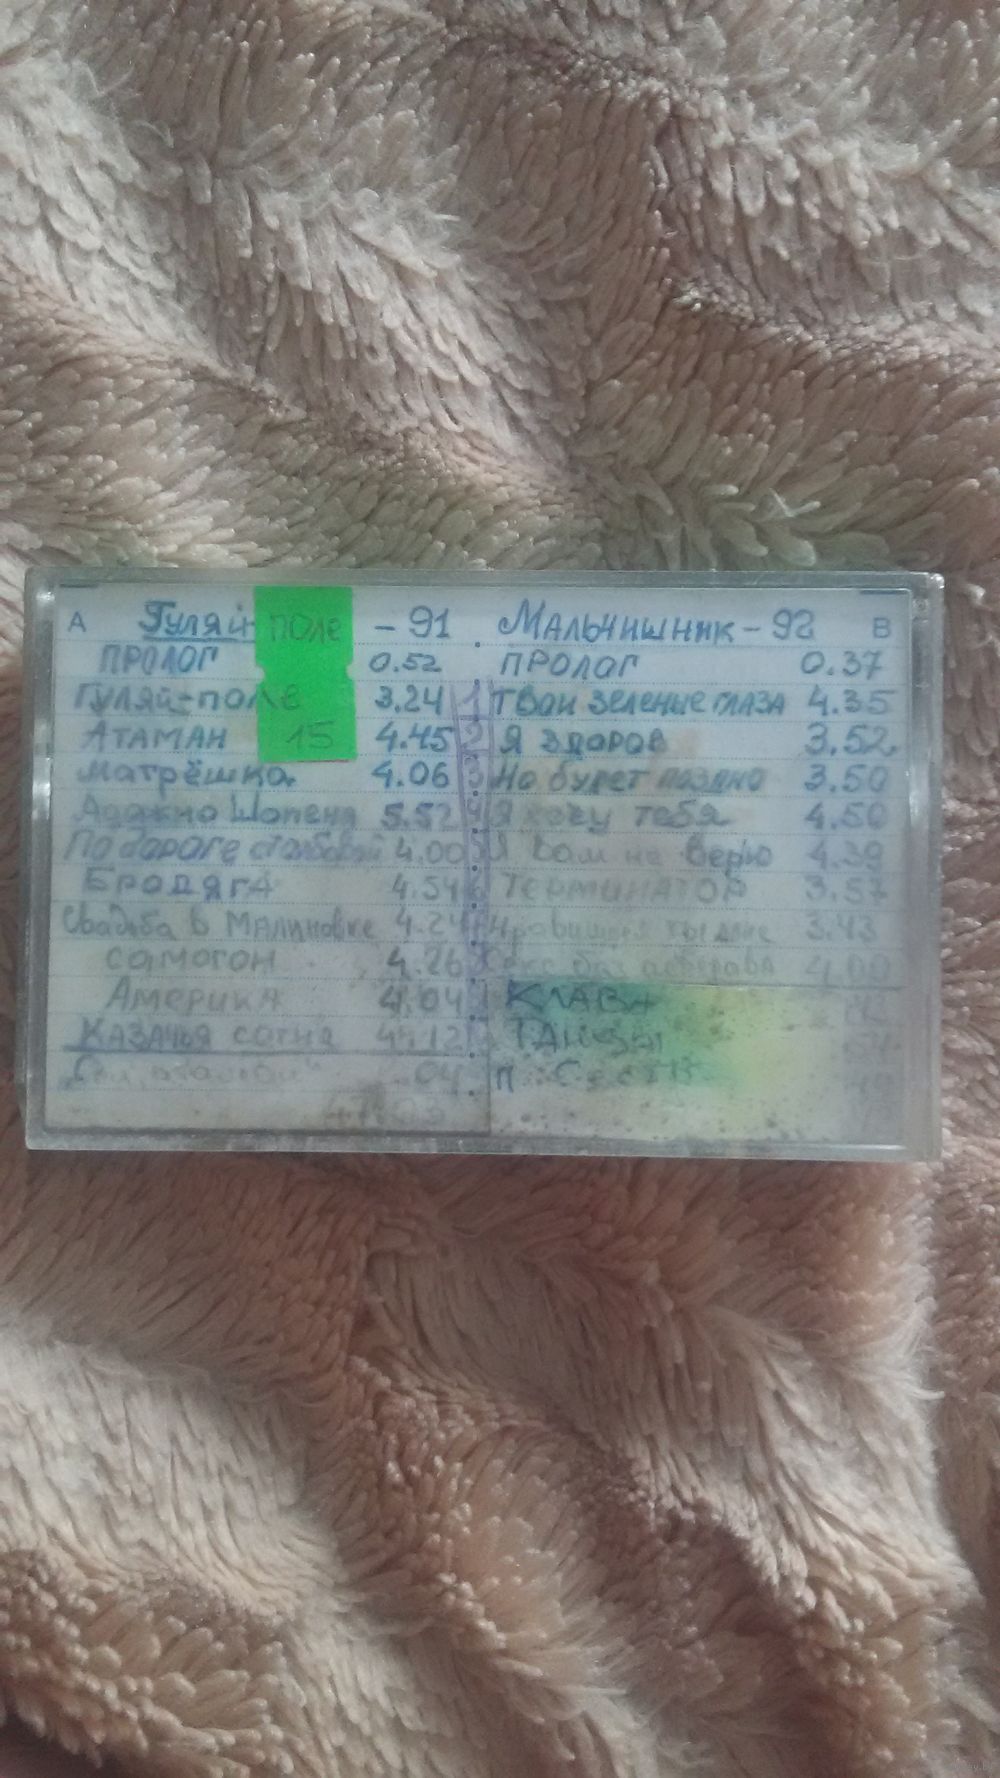 A
Гуляй-поле - 91
ПРОЛОГ 0.52
Гуляй-поле 3.24
Атаман 15 4.45
Матрёшка 4.06
Адажио Шопена 5.52
По дороге столбовой 4.00
Бродяга 4.54
Свадьба в Малиновке 4.24
Самогон 4.26
Америка 4.04
Казачья сотня 4.12
04
Мальчишник - 92 B
ПРОЛОГ 0.37
1 Твои зеленые глаза 4.35
2 Я здоров 3.52
3 Но будет поздно 3.50
4 Я хочу тебя 4.50
Я Вам не верю 4.39
Терминатор 3.57
3.43
Секс без 4.00
Клава
Танцы